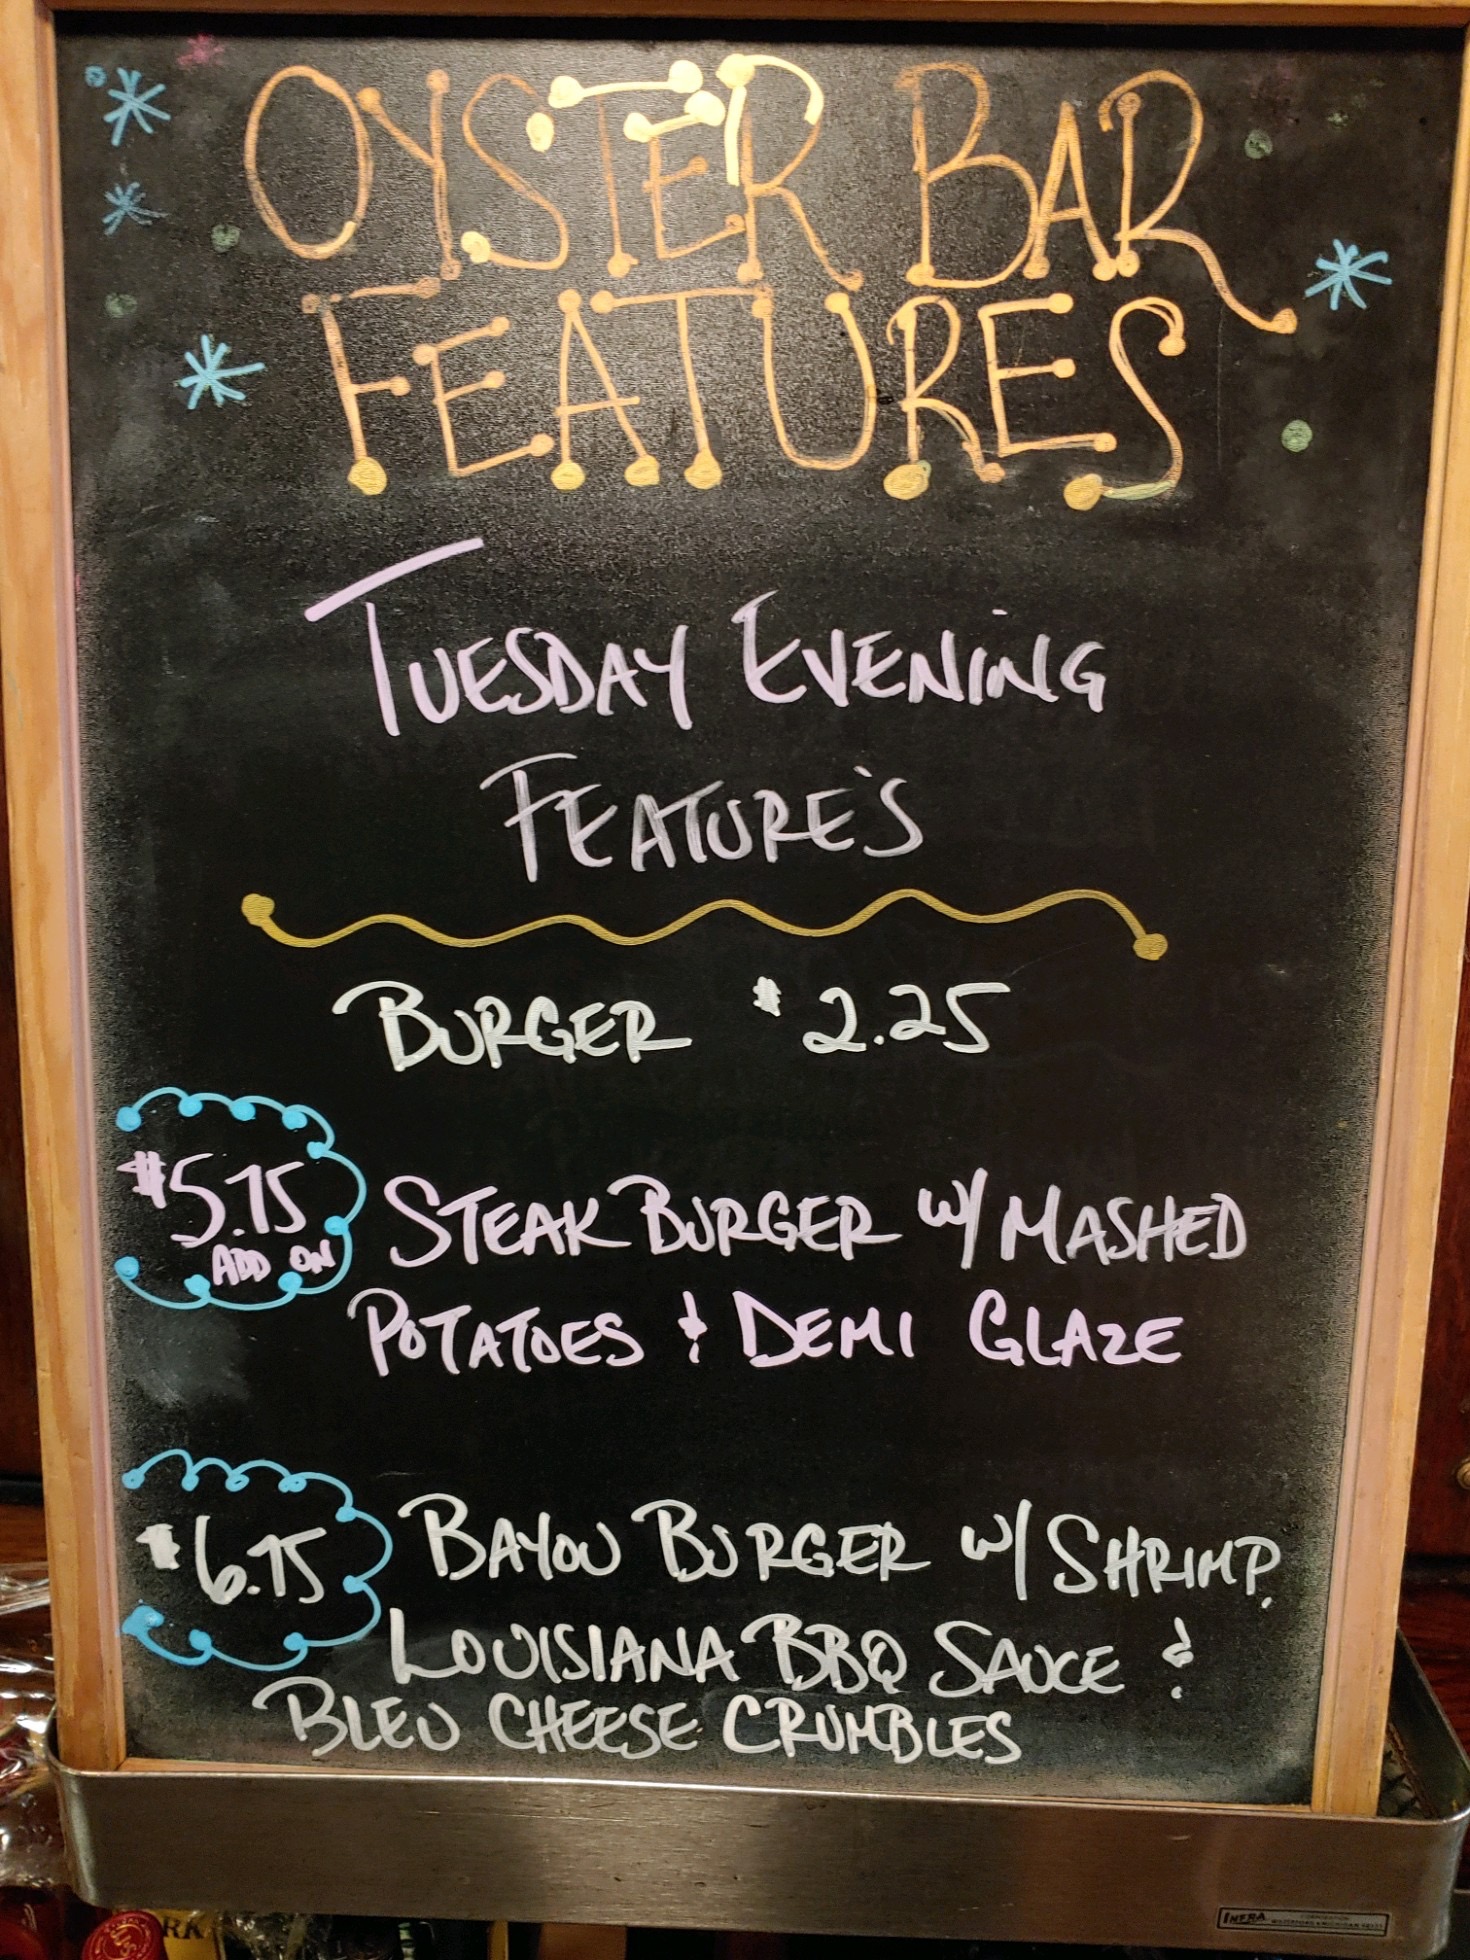 OYSTER BAR
FEATURES
TUESDAY EVENING
FEATURE'S
BURGER $2.25
$5.75
ADD ON
STEAK BURGER W/ MASHED
POTATOES & DEMI GLAZE
$6.75
BAYOU BURGER W/ SHRIMP,
LOUISIANA BBQ SAUCE &
BLEU CHEESE CRUMBLES
INFRA
CORPORATION
RK